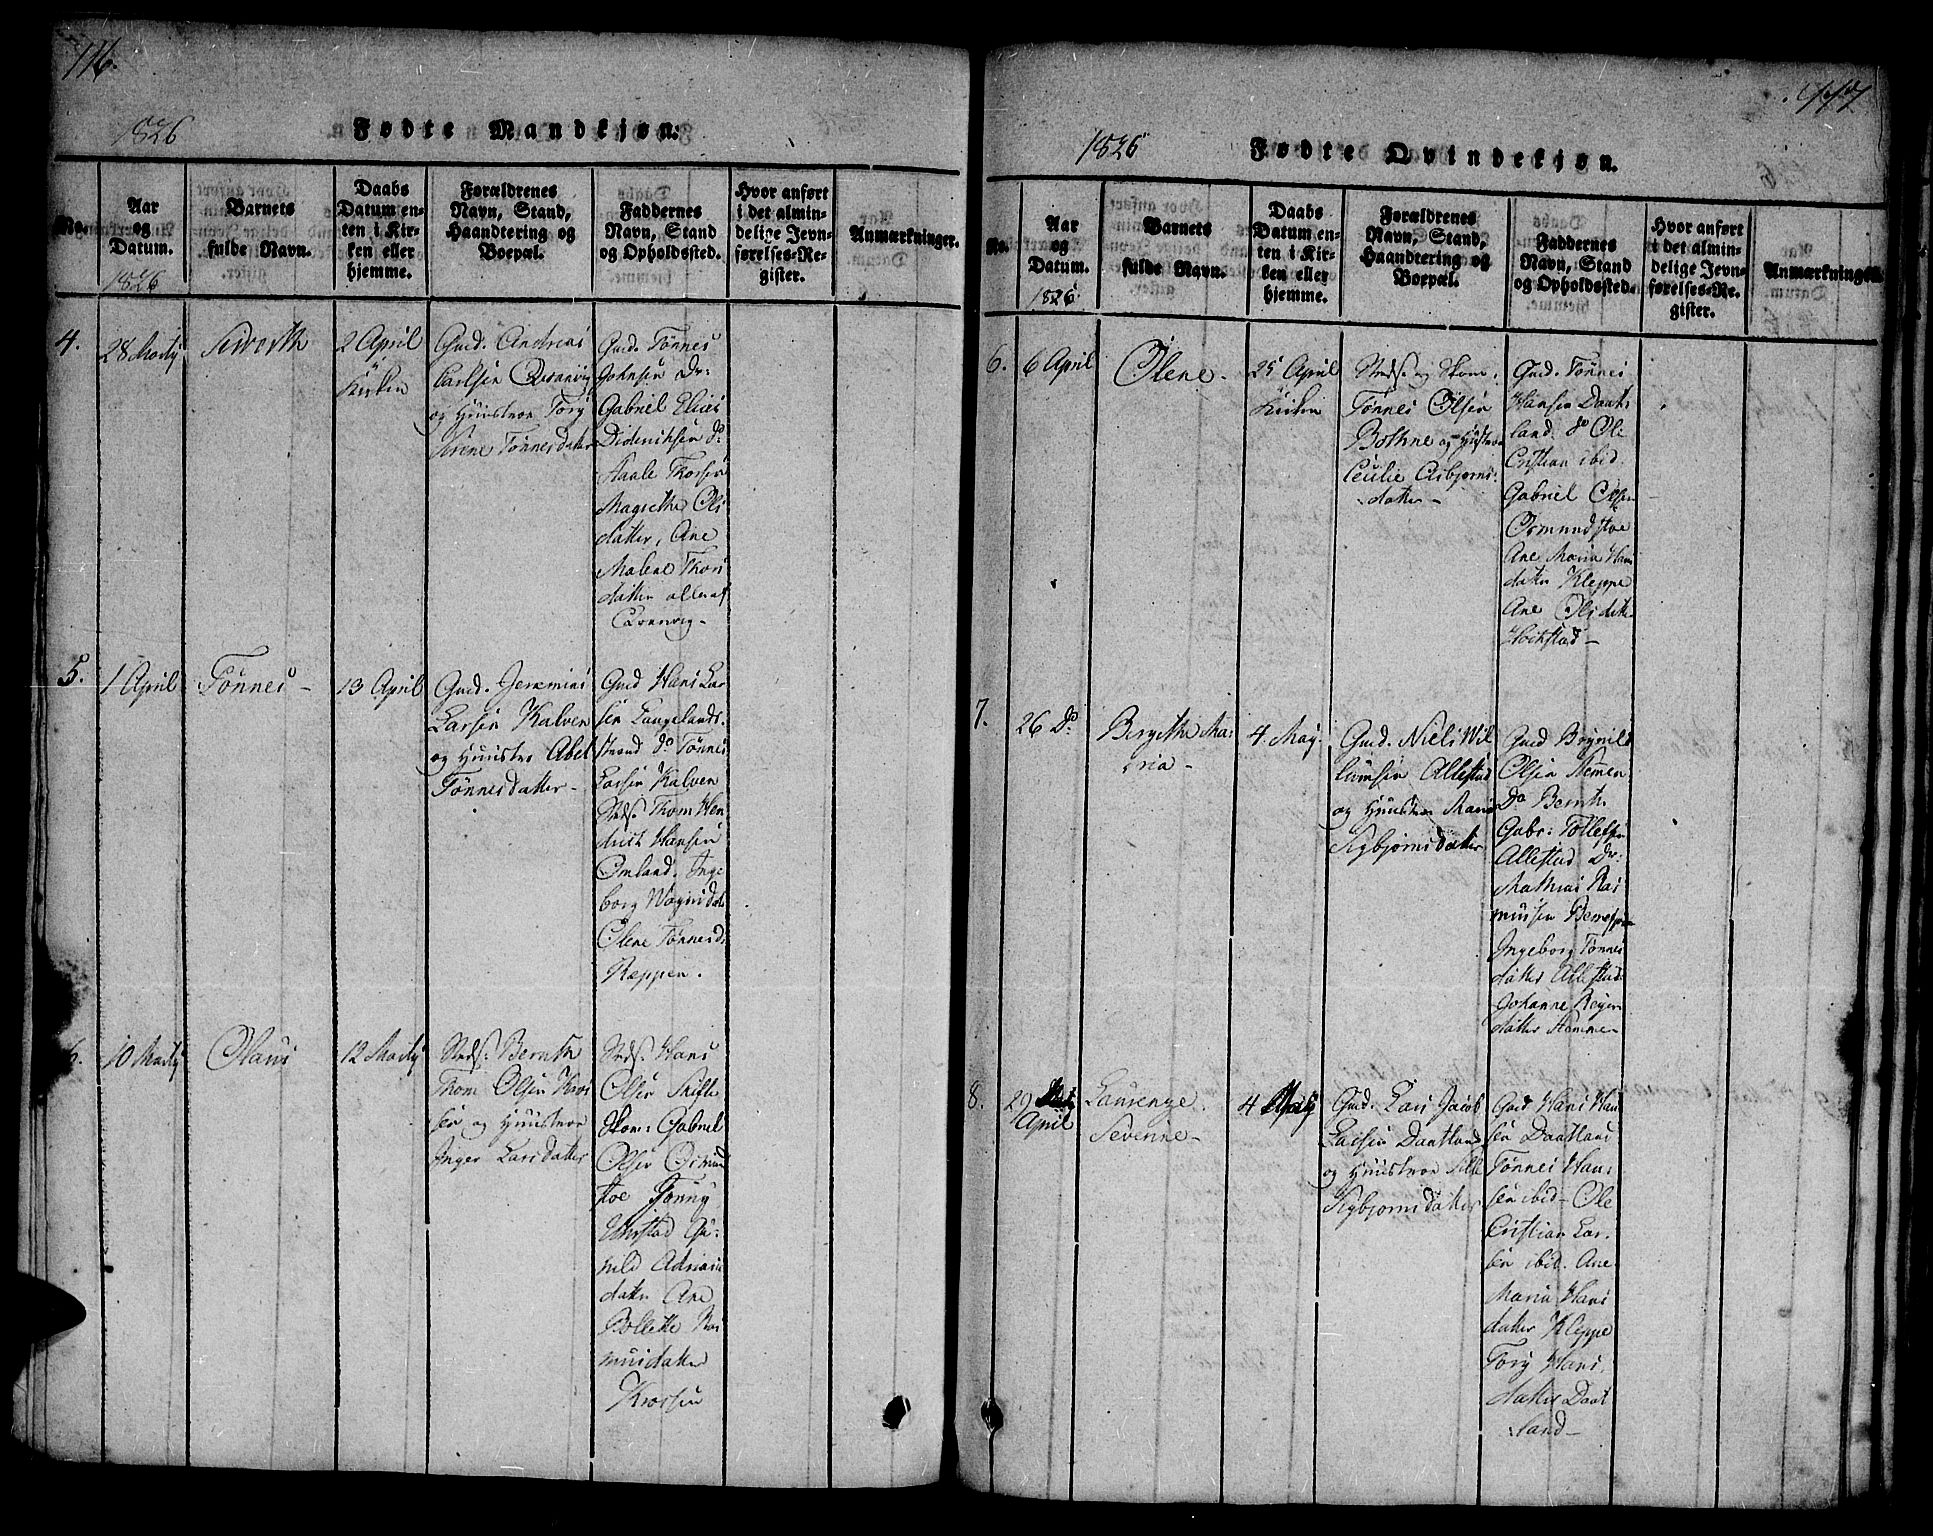 116.
1826
Fødte Mandkjøn.
No.
Aar
og
Datum.
1826
Barnets
fulde Navn.
Daabs
Datum en-
ten i Kir-
ken eller
hjemme.
Forældrenes
Navn, Stand,
Haandtering og
Boepæl.
Faddernes
Navn, Stand
og Opholdssted.
Hvor anført
i det almin-
delige Jevn-
førelses-Re-
gister.
Anmærkninger.
4.
28 Marty
Siverth
2 April
Kirken
Gmd. Andreas
Carlsen
og Hustroe Tory
Sirene Tønnesdatter
Gmd. Tønnes
Johnsen Dr:
Gabriel Elias
Dideriksen do
Aale Thorsen
Magrethe Ols
datter, Ane
Malene Thors
datter alle af
5.
1 April
Tønnes
13 April
Gmd. Jeremias
Larsen Kalven
og Huustro Abel
Tønnesdatter
Gmd Hans Lar
sen Langelands
strand do Tønnes
Larsen Kalven
Thom Hen
drich Hansen
Omland. Inge
borg
Olene Tønnesd.
Ræppen.
6.
10 Marty
Olaus
12 Marty
Bernth
Thom Olsen Kros
sen og Huustroe
Inger Larsdatter
Hans
Olsen
Gabriel
Olsen Osmund
stoe Jonny
Gu-
nild Adrians
datter Ane
Bollette Ras
musdatter
Krossen
117
1826
Fødte Qvindekjøn.
No.
Aar
og
Datum.
1826
Barnets
fulde Navn.
Daabs
Datum en-
ten i Kir-
ken eller
hjemme.
Forældrenes
Navn, Stand,
Haandtering og
Boepæl.
Faddernes
Navn, Stand
og Opholdssted.
Hvor anført
i det almin-
delige Jevn-
førelses-Re-
gister.
Anmærkninger.
6.
6 April
Olene
25 April
Kirken
og
Tønnes Olsen
Bothne og Hustroe
Cecilie Asbjørns-
datter
Gmd. Tønnes
Hansen Daat-
land. do Ole
Cristian ibid.
Gabriel Olsen
Osmundstoe
Ane Maria Hans
datter Kleppe
Ane Olsdatter
7.
26 Do
Bergithe Ma-
ria
4. May.
Gmd. Niels Wil
lumsen Allestad
og Huustro Maria
Sigbjørnsdatter
Gmd Bøynild
Olsen Stemmen
Do Bernth
Gabr: Tollefsen
Allestad Dr:
Mathias Ras
mussen
Ingeborg Tønnes
datter Allestad
Johanne Reyer
datter Stemmen
8.
29
April
Laurenze
Severine
4 May
Gmd. Lars Jacob
Larsen Daatland
og Huustroe Sille
Sigbjørnsdatter
Gmd Hans Han
sen Daatland
Tønnes Han-
sen ibid Ole
Cristian Lar-
sen ibid. Ane
Maria Hans
datter Kleppe
Tory Hans-
datter Daat
land